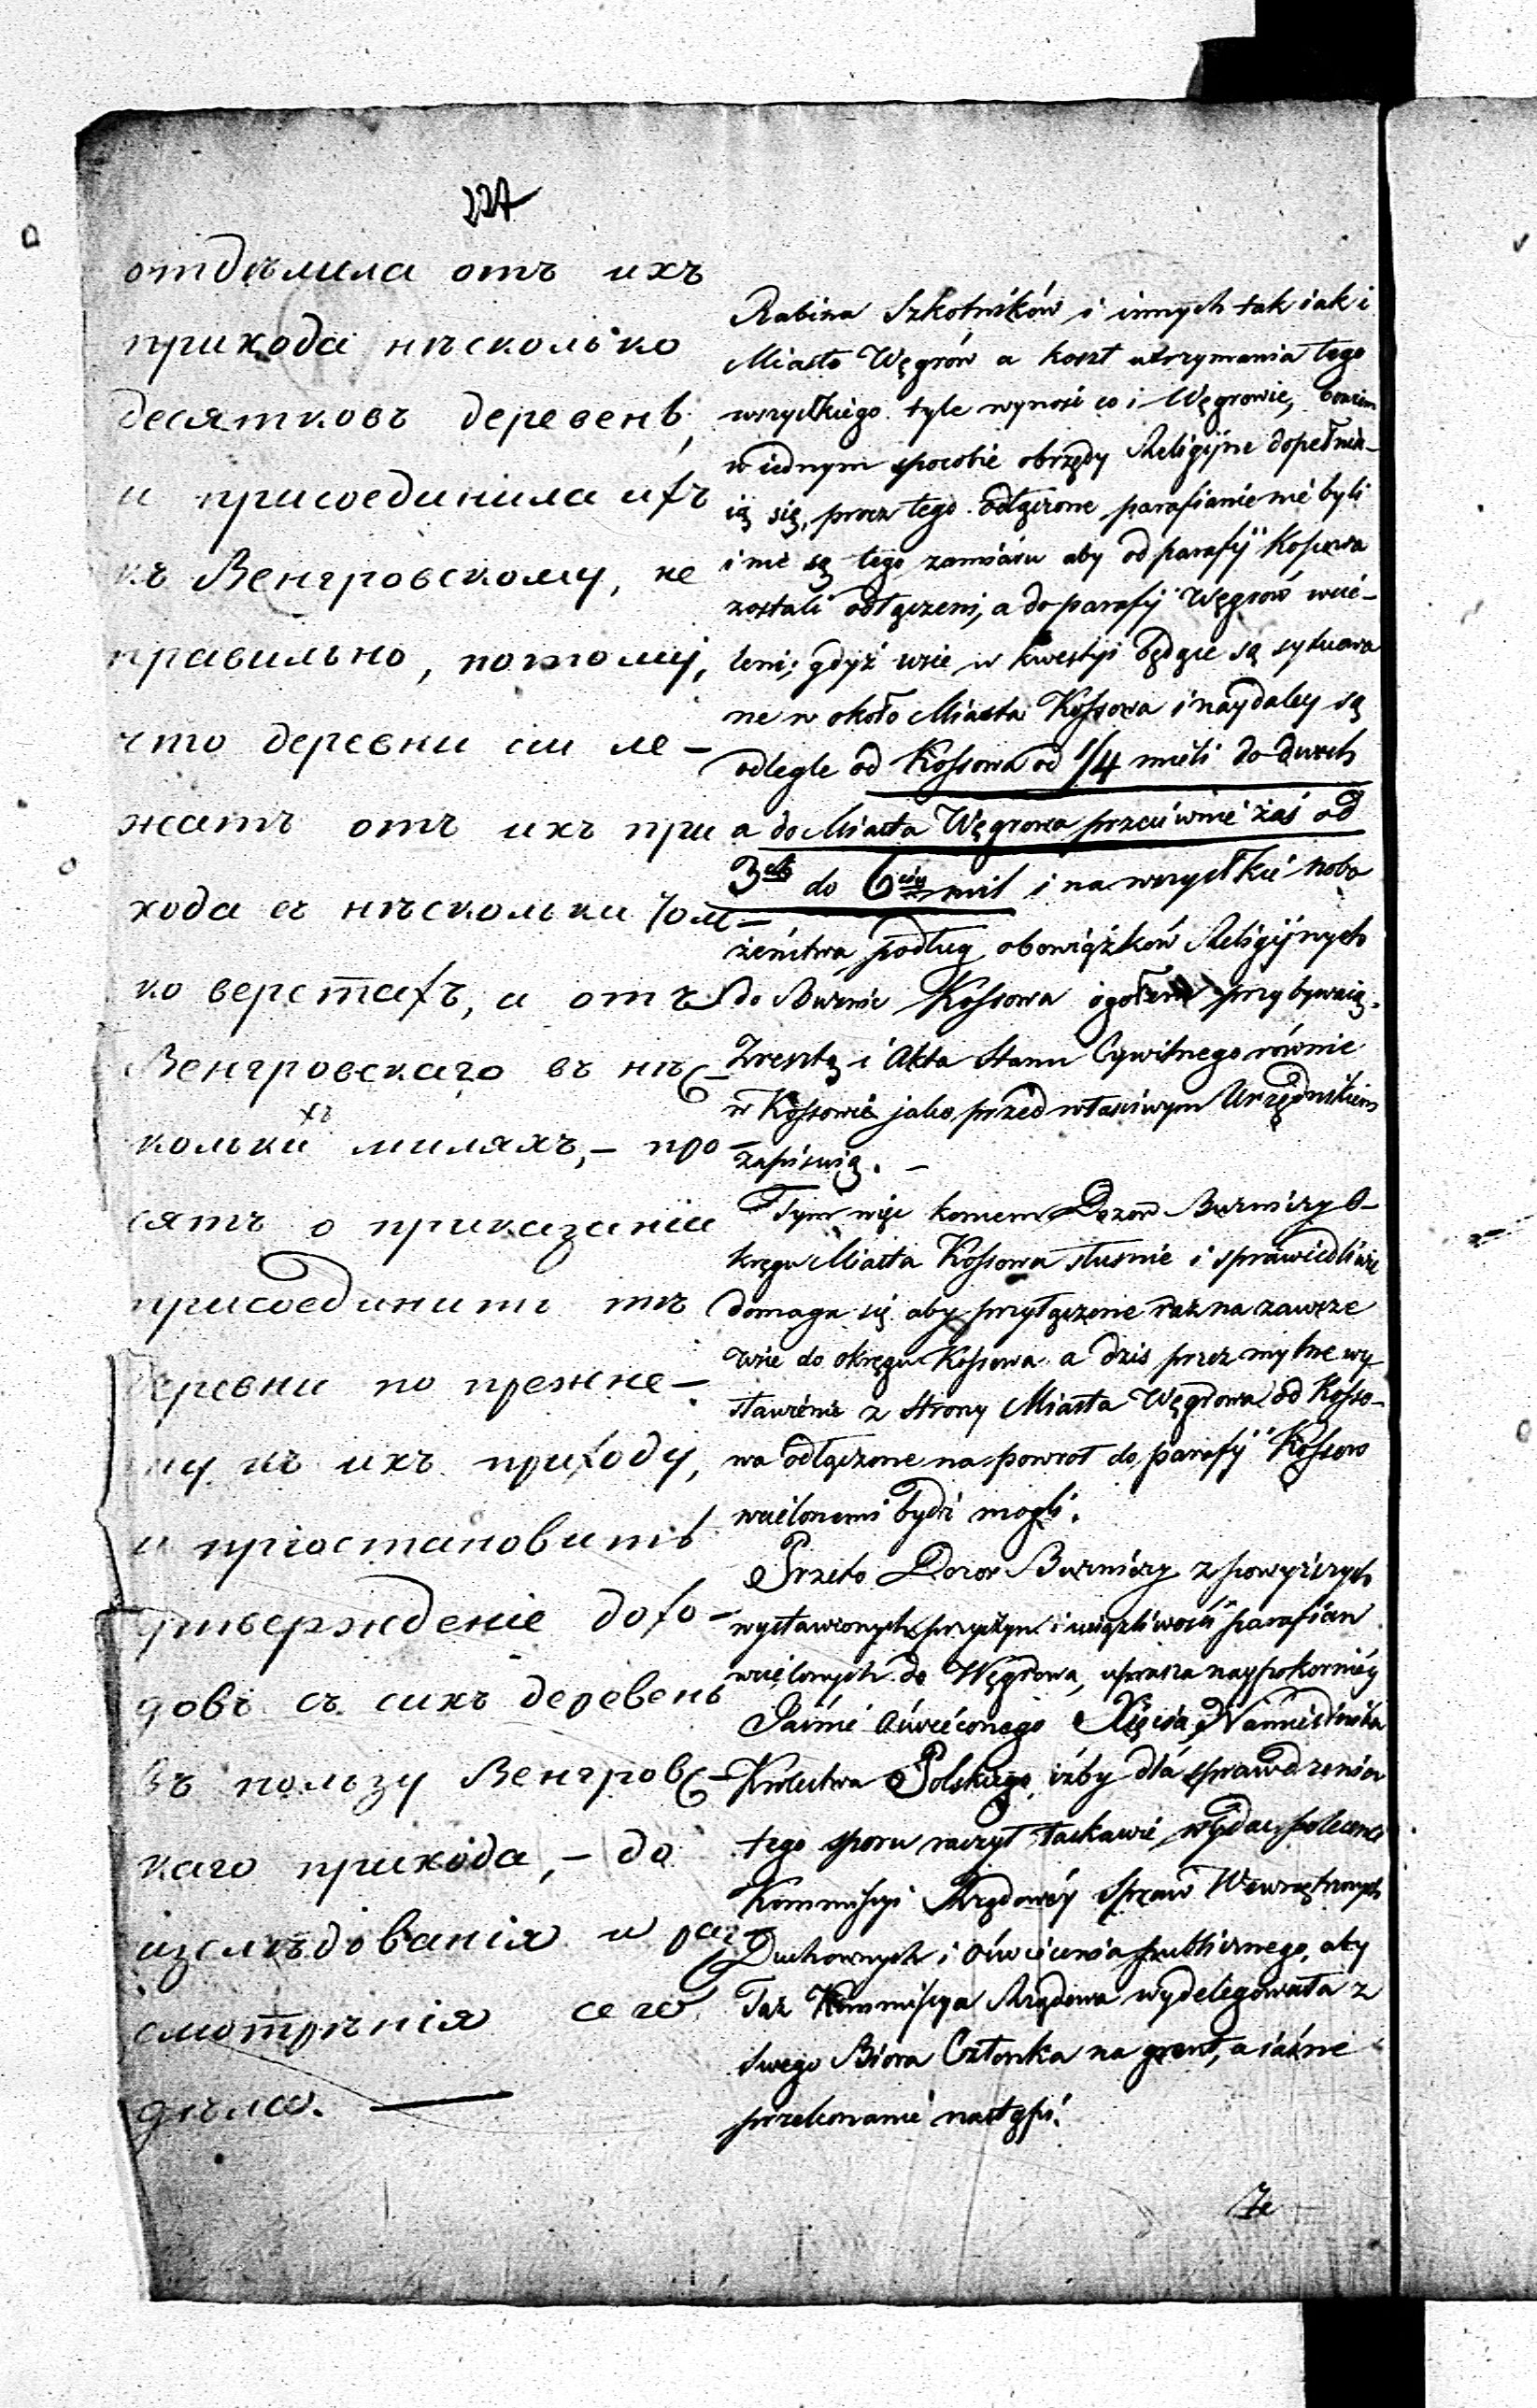 227
отдѣлила отъ ихъ
прихода нѣсколько
десятковъ деревень,
и присоединила ихъ
къ Венгровскому, не
правильно, потому,
что деревни сіи ле-
жатъ отъ ихъ при
хода въ нѣсколькихъ толь-
ко верстахъ, а отъ
Венгровскаго въ нѣс-
колькихъ миляхъ, – про-
сятъ о приказаніи
присоединить тѣ
деревни по прежне-
му къ ихъ приходу,
и пріостановить
утвержденіе дохо-
довъ съ сихъ деревень
въ пользу Венгровс-
каго прихода, – до
изслѣдованія и раз-
смотрѣнія сего
дѣла. —
Rabina Szkolników i innych tak iak i
Miasto Węgrów a koszt utrzymania tego
wszystkiego tyle wynosi co i Węgrowie, bowiem
w iednym sposobie obrzędy Religijne dopełnia-
ią się, przez tego odłączone parafianie nie byli
i nie są tego zamiaru aby od parafij Kossowa
zostali odłączeni, a do parafij Węgrów wcie-
leni; gdyż wsie w kwestyi będące są sytuowa
ne w około Miasta Kossowa i naydaley są
odległe od Kossowa od 1/4 mili do dwóch
a do Miasta Węgrowa przeciwnie zaś od
3ch do 6ciu mil i na wszystkie nabo
żeństwa podług obowiązków Religijnych
do Bużnic Kossowa ogołem przybywaią.
Zresztą i Akta Stanu Cywilnego równie
w Kossowie jako przed właściwym Urzędnikiem
zapisuią. –
Tym więc koncem Dozor Bużniczy O-
kręgu Miasta Kossowa słusznie i sprawiedliwie
domaga się aby przyłączone raz na zawsze
wsie do okręgu Kossowa a dziś przez mylne wy
stawienie z Strony Miasta Węgrowa od Kosso-
wa odłączone na powrot do parafij Kossow
wcielonemi bydź mogli.
Przeto Dozor Bużniczy z powyższych
wystawionych przyczyn i uciążliwości parafian
wcielonych do Węgrowa, uprasza naypokorniéy
Jaśnie Oświeconego Xięcia Namiestnika
Królestwa Polskiego, iżby dla sprawdzenia
tego sporu raczył łaskawie wydać polecenie
Kommissyi Rządowéy Spraw Wewnętrznych
Duchownych i Oświecenia publicznego, aby
Taż Kommissya Rządowa wydelegowała z
swego Biora Członka na grunt, a iaśnie
przekonanie nastąpi.
Ze